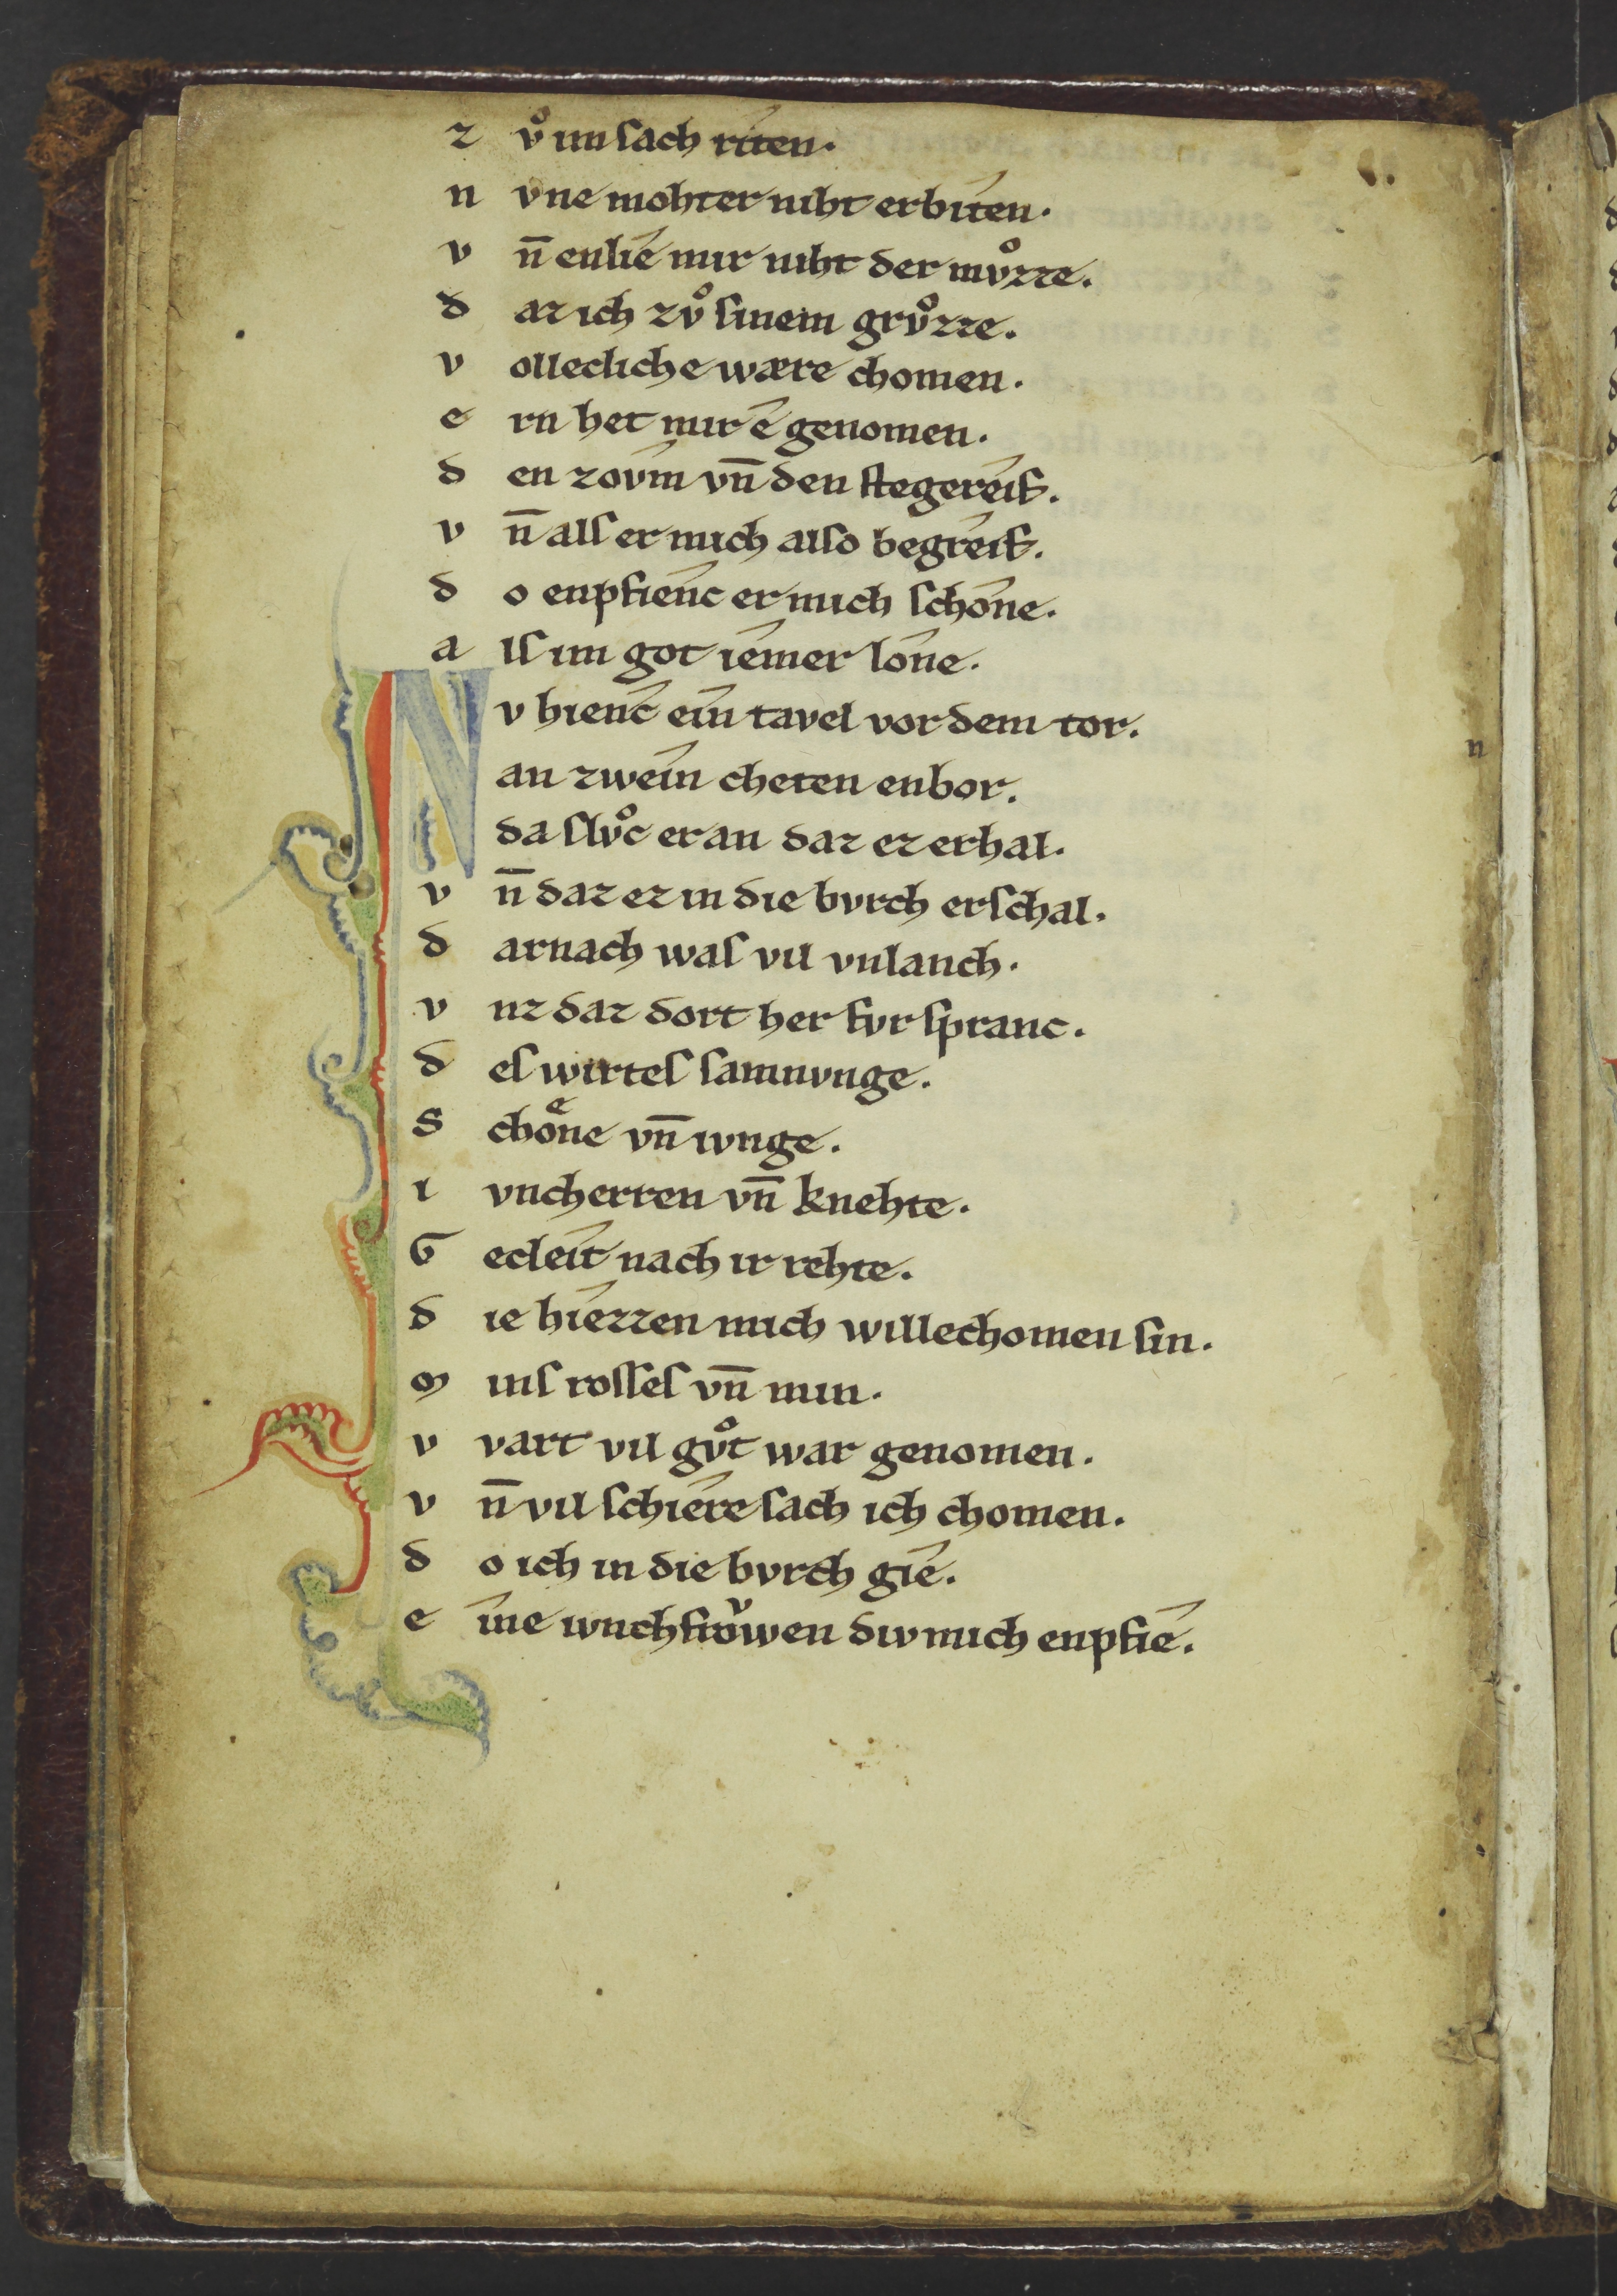 z vͦ im sach rîten.
n v ne mohter niht erbîten.
v n̄ enlîe mir niht der mvͦzze.
d az ich zvͦ sinem grvͦzze.
v ollecliche wære chomen.
e rn het mir ê genomen.
d en zovm̂ vn̄ den stegereîf.
v n̄ als er mich also begreîf.
d o enpfienĉ er mich schône.
a ls im got iêmer lône.
N v hienĉ ein̂ tavel vor dem tor.
an zwein̂ cheten enbor.
da slvͦc er an daz ez erhal.
v n̄ daz ez in die bvrch erschal.
d arnach was vil vnlanch.
v nz daz dort her fvr spranc.
d es wirtes samnvnge.
S choͤne vn̄ ivnge.
i vncherren vn̄ knehte.
G ecleît nach ir rehte.
d ie hîezzen mich willechomen sin.
m ins rosses vn̄ min.
v vart vil gvͦt war genomen.
v n̄ vil schiêre sach ich chomen.
d o ich in die bvrch gîe.
e îne ivnchfroͮwen div mich enpfîe.
n